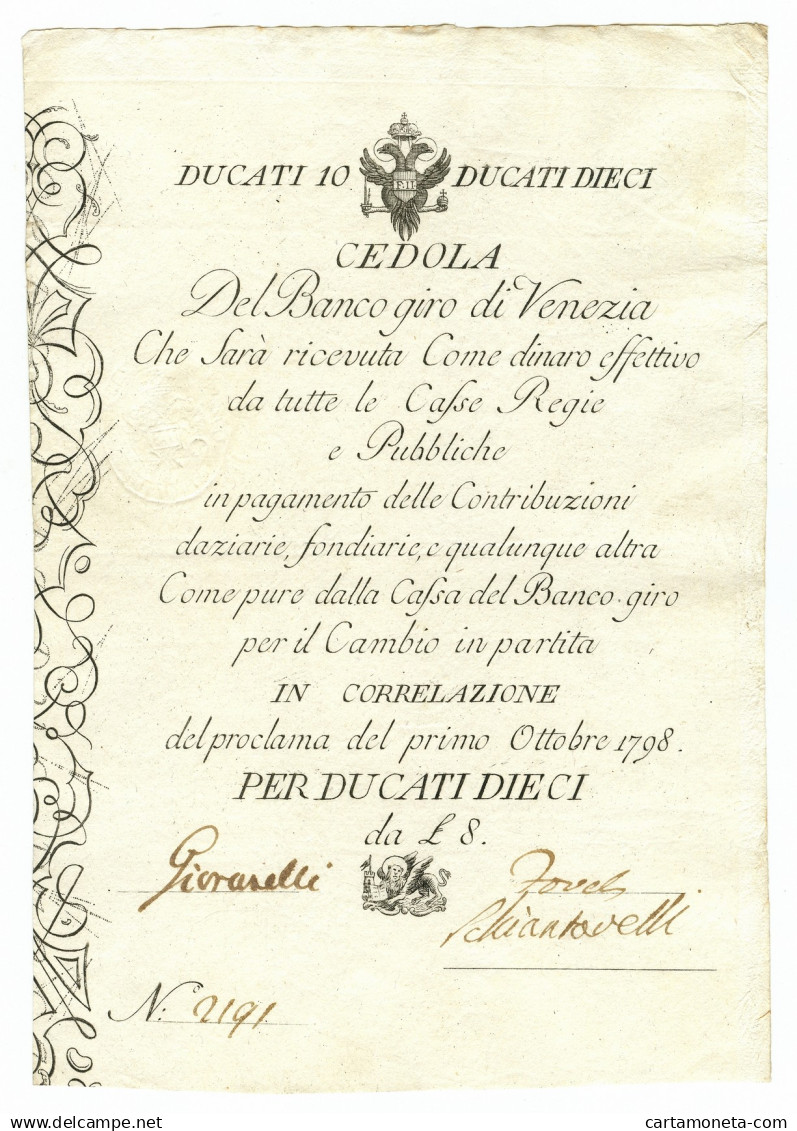 DUCATI 10 DUCATI DIECI
F.II.
CEDOLA
Del Banco giro di Venezia
Che Sarà ricevuta Come dinaro effettivo
da tutte le Casse Regie
e Pubbliche
in pagamento delle Contribuzioni
daziarie, fondiarie, e qualunque altra
Come pure dalla Cassa del Banco giro
per il Cambio in partita
IN CORRELAZIONE
del proclama del primo Ottobre 1798.
PER DUCATI DIECI
da £ 8.
Giovanelli
Schiantarelli
N: 2191
delcampe.net
cartamoneta-com